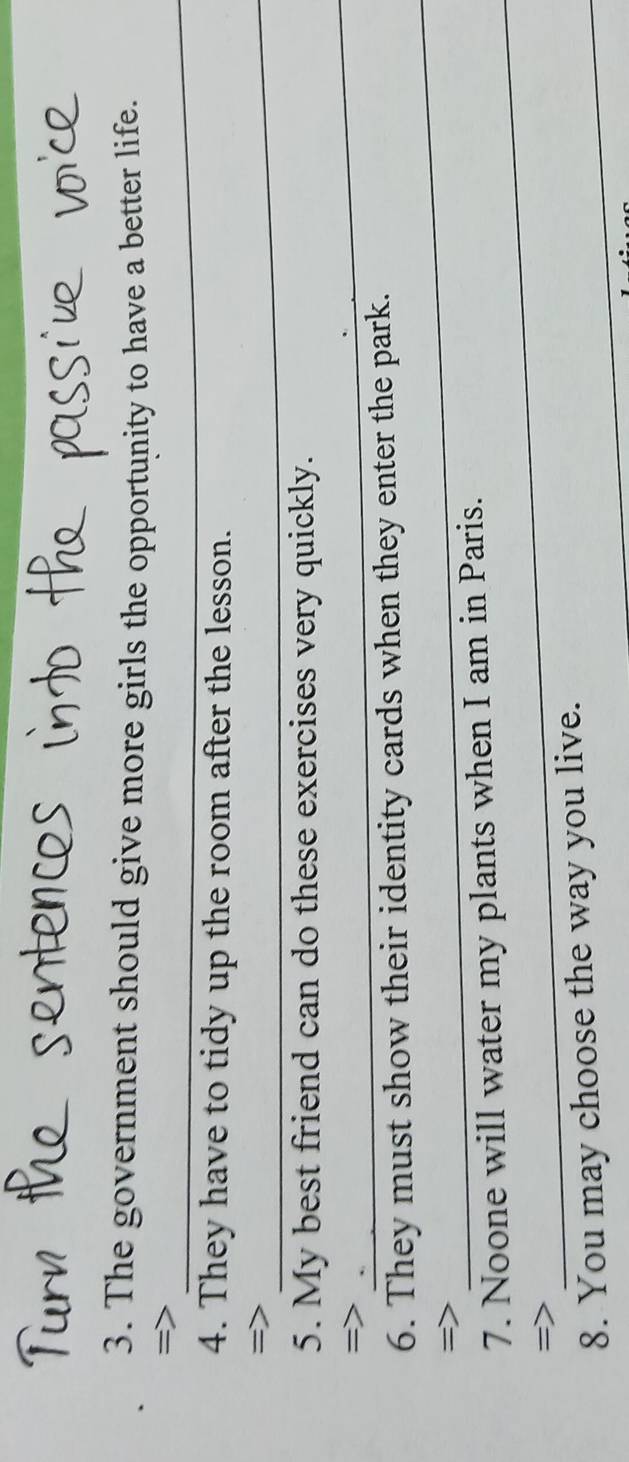 Turn the sentences into the passive voice
3. The government should give more girls the opportunity to have a better life.
=>
4. They have to tidy up the room after the lesson.
=>
5. My best friend can do these exercises very quickly.
=>
6. They must show their identity cards when they enter the park.
=>
7. Noone will water my plants when I am in Paris.
=>
8. You may choose the way you live.